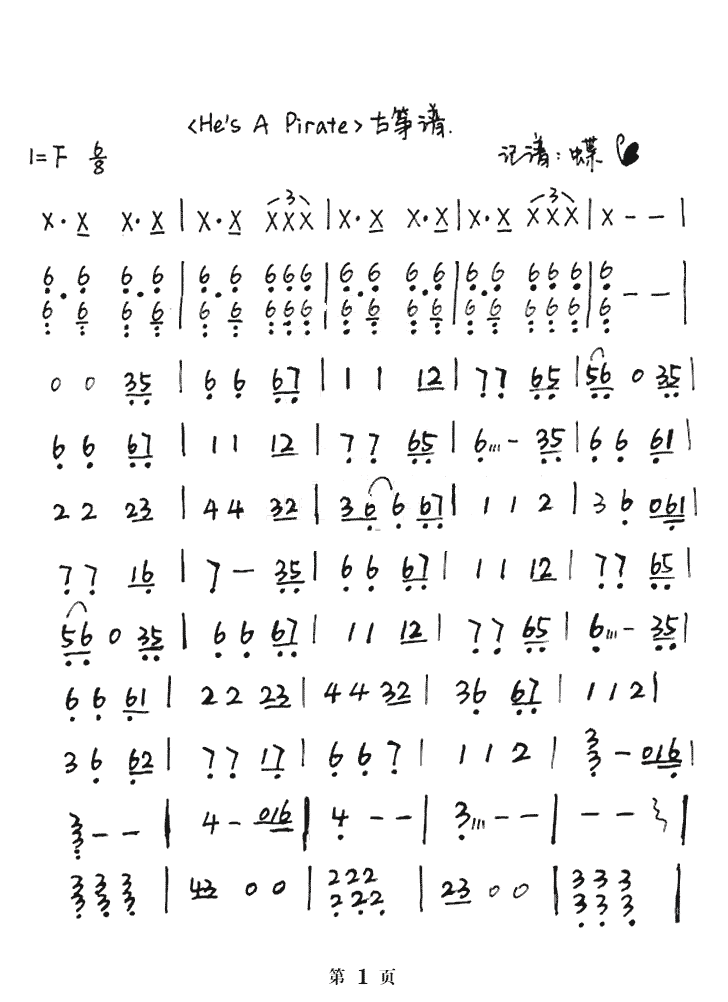 <He's A Pirate>古筝谱.
1=F 6/8
记谱:蝶
X·X X·X | X·X XXX | X·X X·X | X·X XXX | X - - |
6·6 6·6 | 6·6 666 | 6·6 6·6 | 6·6 666 | 6 - - |
6 6 6 6 | 6 6 666 | 6 6 6 6 | 6 6 666 | 6
0 0 35 | 6 6 67 | 1 1 12 | 7 7 65 | 56 0 35 |
6 6 67 | 1 1 12 | 7 7 65 | 6 - 35 | 6 6 61 |
2 2 23 | 4 4 32 | 36 6 67 | 1 1 2 | 3 6 061 |
7 7 16 | 7 - 35 | 6 6 67 | 1 1 12 | 7 7 65 |
56 0 35 | 6 6 67 | 1 1 12 | 7 7 65 | 6 - 35 |
6 6 61 | 2 2 23 | 4 4 32 | 36 67 | 1 1 2 |
3 6 62 | 7 7 17 | 6 6 7 | 1 1 2 | 333 - 016 |
333 - - | 4 - 016 | 4 - - | 3 - - | - - |
3 3 3 | 43 0 0 | 222 | 23 0 0 | 3 3 3 |
3 3 3 222 3 3 3
第 1 页